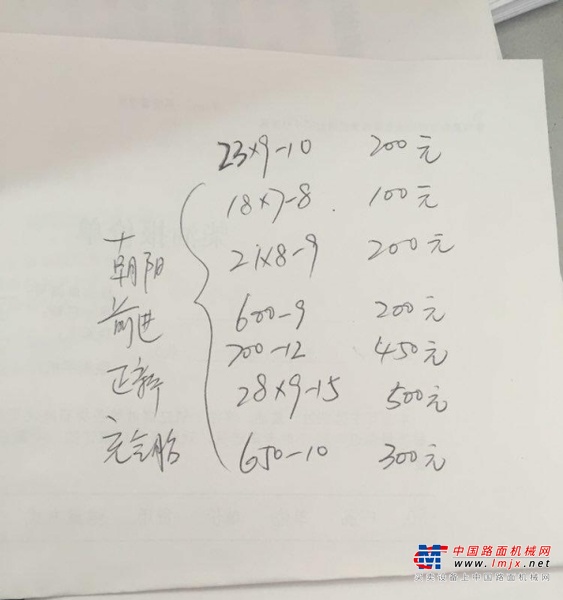 23×9-10 200元
18×7-8 100元
21×8-9 200元
朝阳
600-9 200元
前进
700-12 450元
正新
28×9-15 500元
充气胎
650-10 300元
中国路面机械网
www.lmjx.net
买卖设备上中国路面机械网